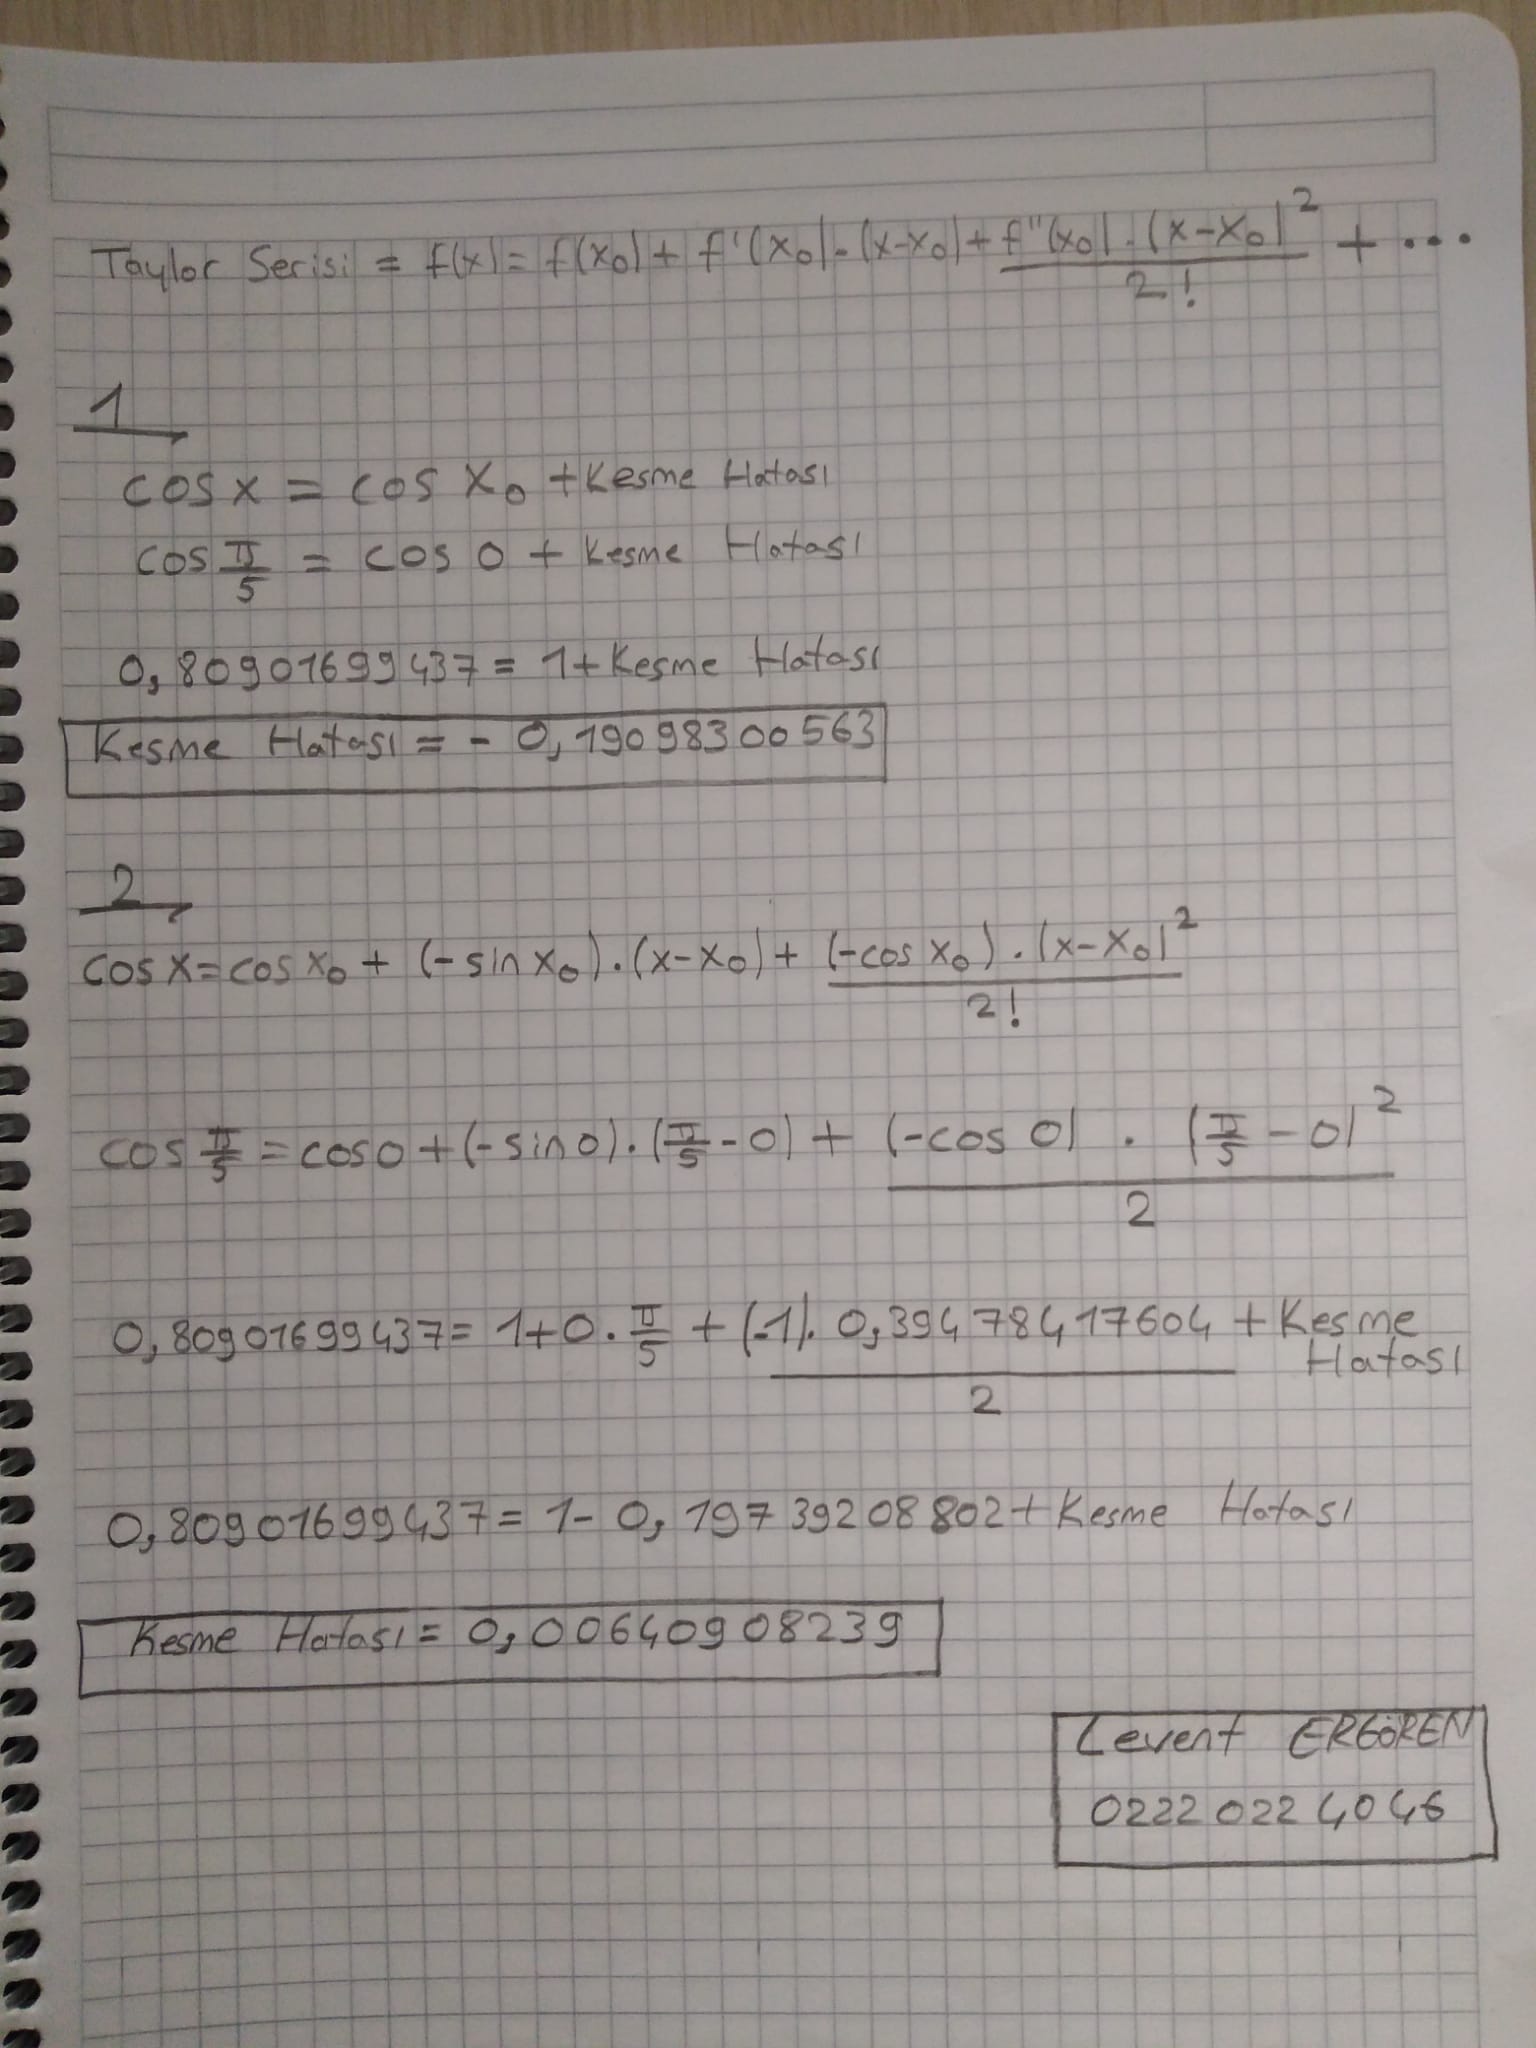 Taylor Serisi = f(x) = f(x₀) + f'(x₀).(x-x₀) + f''(x₀).(x-x₀)²/2! + ...
1
cos x = cos x₀ + Kesme Hatası
cos π/5 = cos 0 + Kesme Hatası
0,80901699437 = 1 + Kesme Hatası
Kesme Hatası = - 0,19098300563
2
cos x = cos x₀ + (-sin x₀).(x-x₀) + (-cos x₀).(x-x₀)²/2!
cos π/5 = cos 0 + (-sin 0).(π/5 - 0) + (-cos 0) . (π/5 - 0)²/2
0,80901699437 = 1+0.π/5 + (-1). 0,39478417604/2 + Kesme Hatası
0,80901699437 = 1 - 0,19739208802 + Kesme Hatası
Kesme Hatası = 0,00640908239
Levent ERGÖREN
02220224046